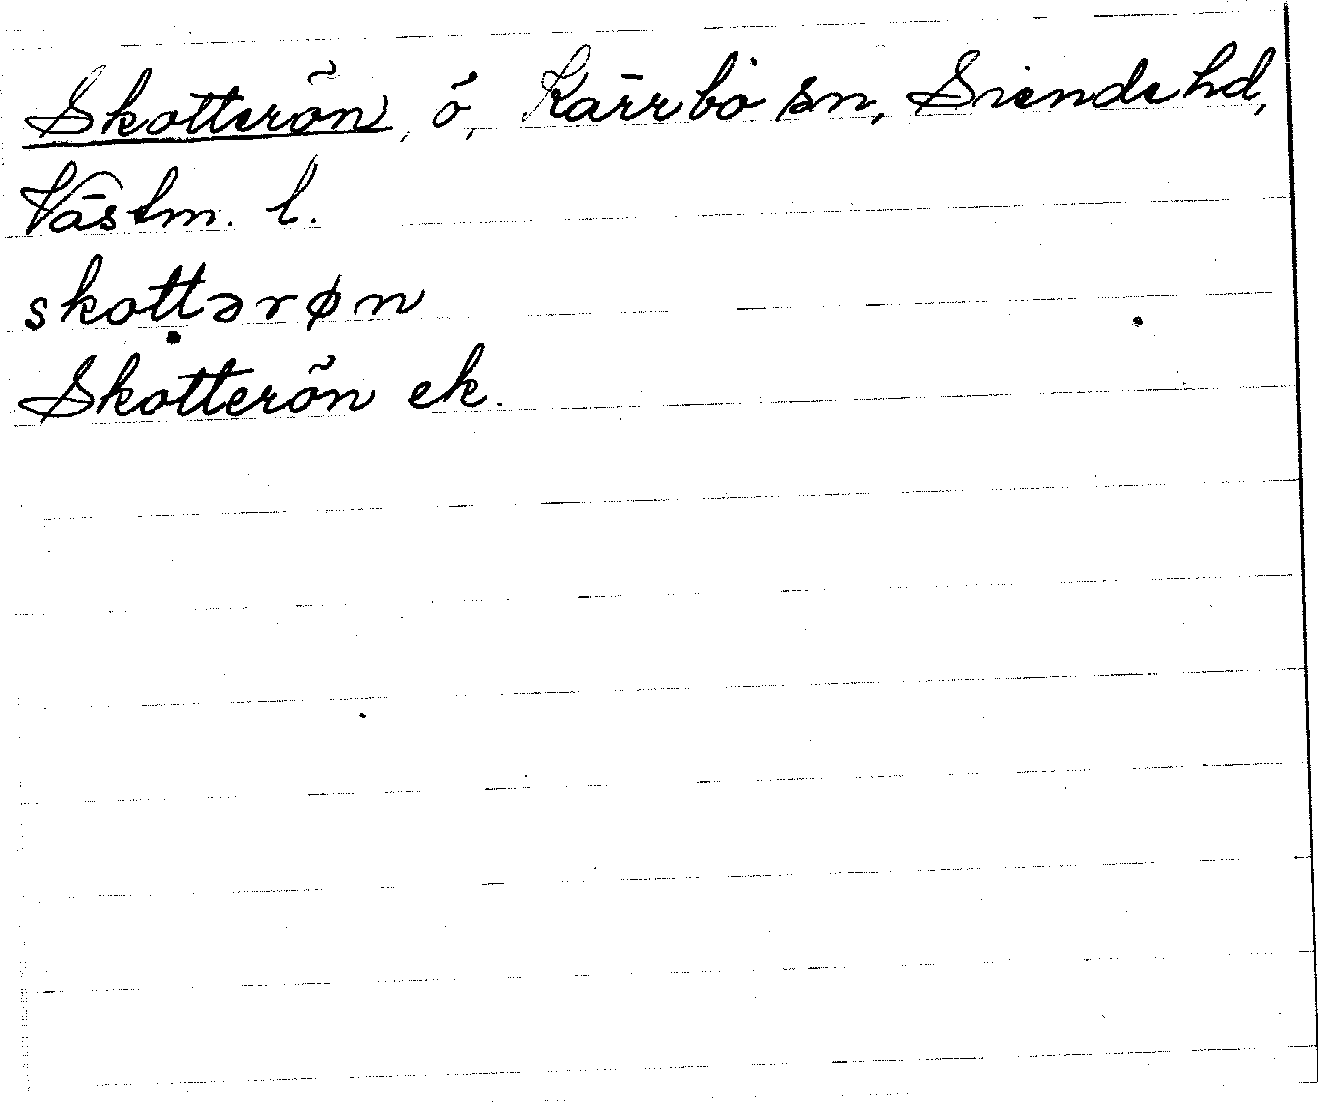 Skotterön, ö, Kärrbo sn, Siende hd,
Västm. l.
skottərøn
Skotterön ek.